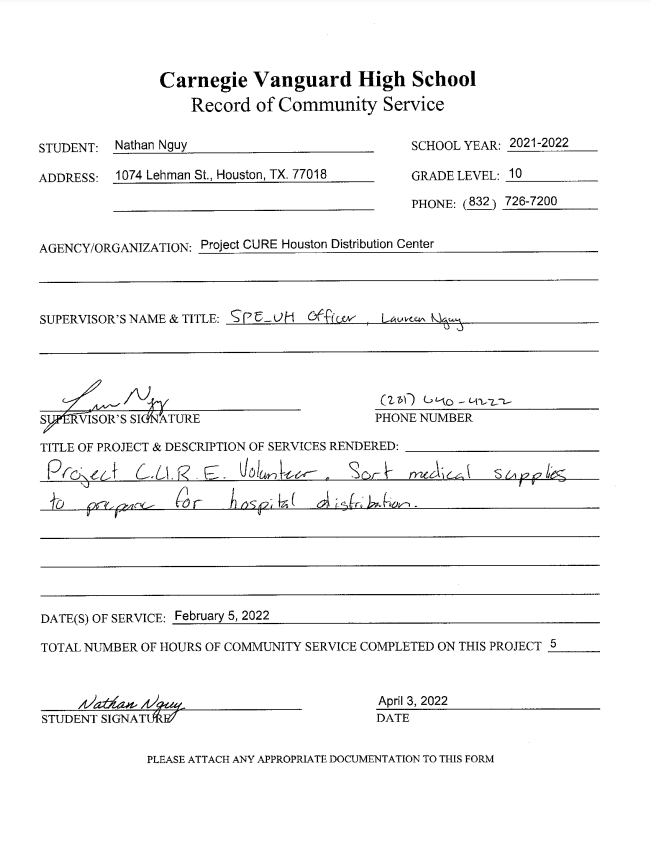 Carnegie Vanguard High School
Record of Community Service
STUDENT: Nathan Nguy SCHOOL YEAR: 2021-2022
ADDRESS: 1074 Lehman St., Houston, TX. 77018 GRADE LEVEL: 10
PHONE: (832) 726-7200
AGENCY/ORGANIZATION: Project CURE Houston Distribution Center
SUPERVISOR'S NAME & TITLE: SPE_UH Officer, Laureen Nguy
(281) 640-4222
SUPERVISOR'S SIGNATURE PHONE NUMBER
TITLE OF PROJECT & DESCRIPTION OF SERVICES RENDERED:
Project C.U.R.E. Volunteer. Sort medical supplies
to prepare for hospital distribution.
DATE(S) OF SERVICE: February 5, 2022
TOTAL NUMBER OF HOURS OF COMMUNITY SERVICE COMPLETED ON THIS PROJECT 5
Nathan Nguy April 3, 2022
STUDENT SIGNATURE DATE
PLEASE ATTACH ANY APPROPRIATE DOCUMENTATION TO THIS FORM